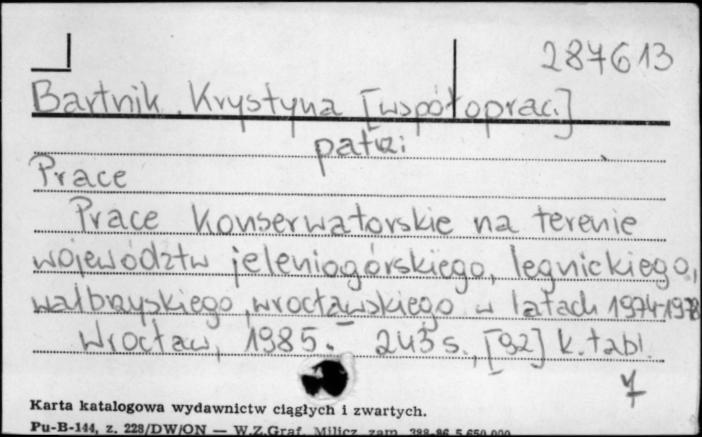 287613
Bartnik Krystyna [współoprac.]
patrz:
Prace
Prace konserwatorskie na terenie
województw jeleniogórskiego, legnickiego,
wałbrzyskiego, wrocławskiego w latach 1974-1978
Wrocław, 1985. - 243 s., [92] k. tabl.
7
Karta katalogowa wydawnictw ciągłych i zwartych.
Pu-B-144, z. 228/DW/ON — W.Z.Graf. Milicz zam.